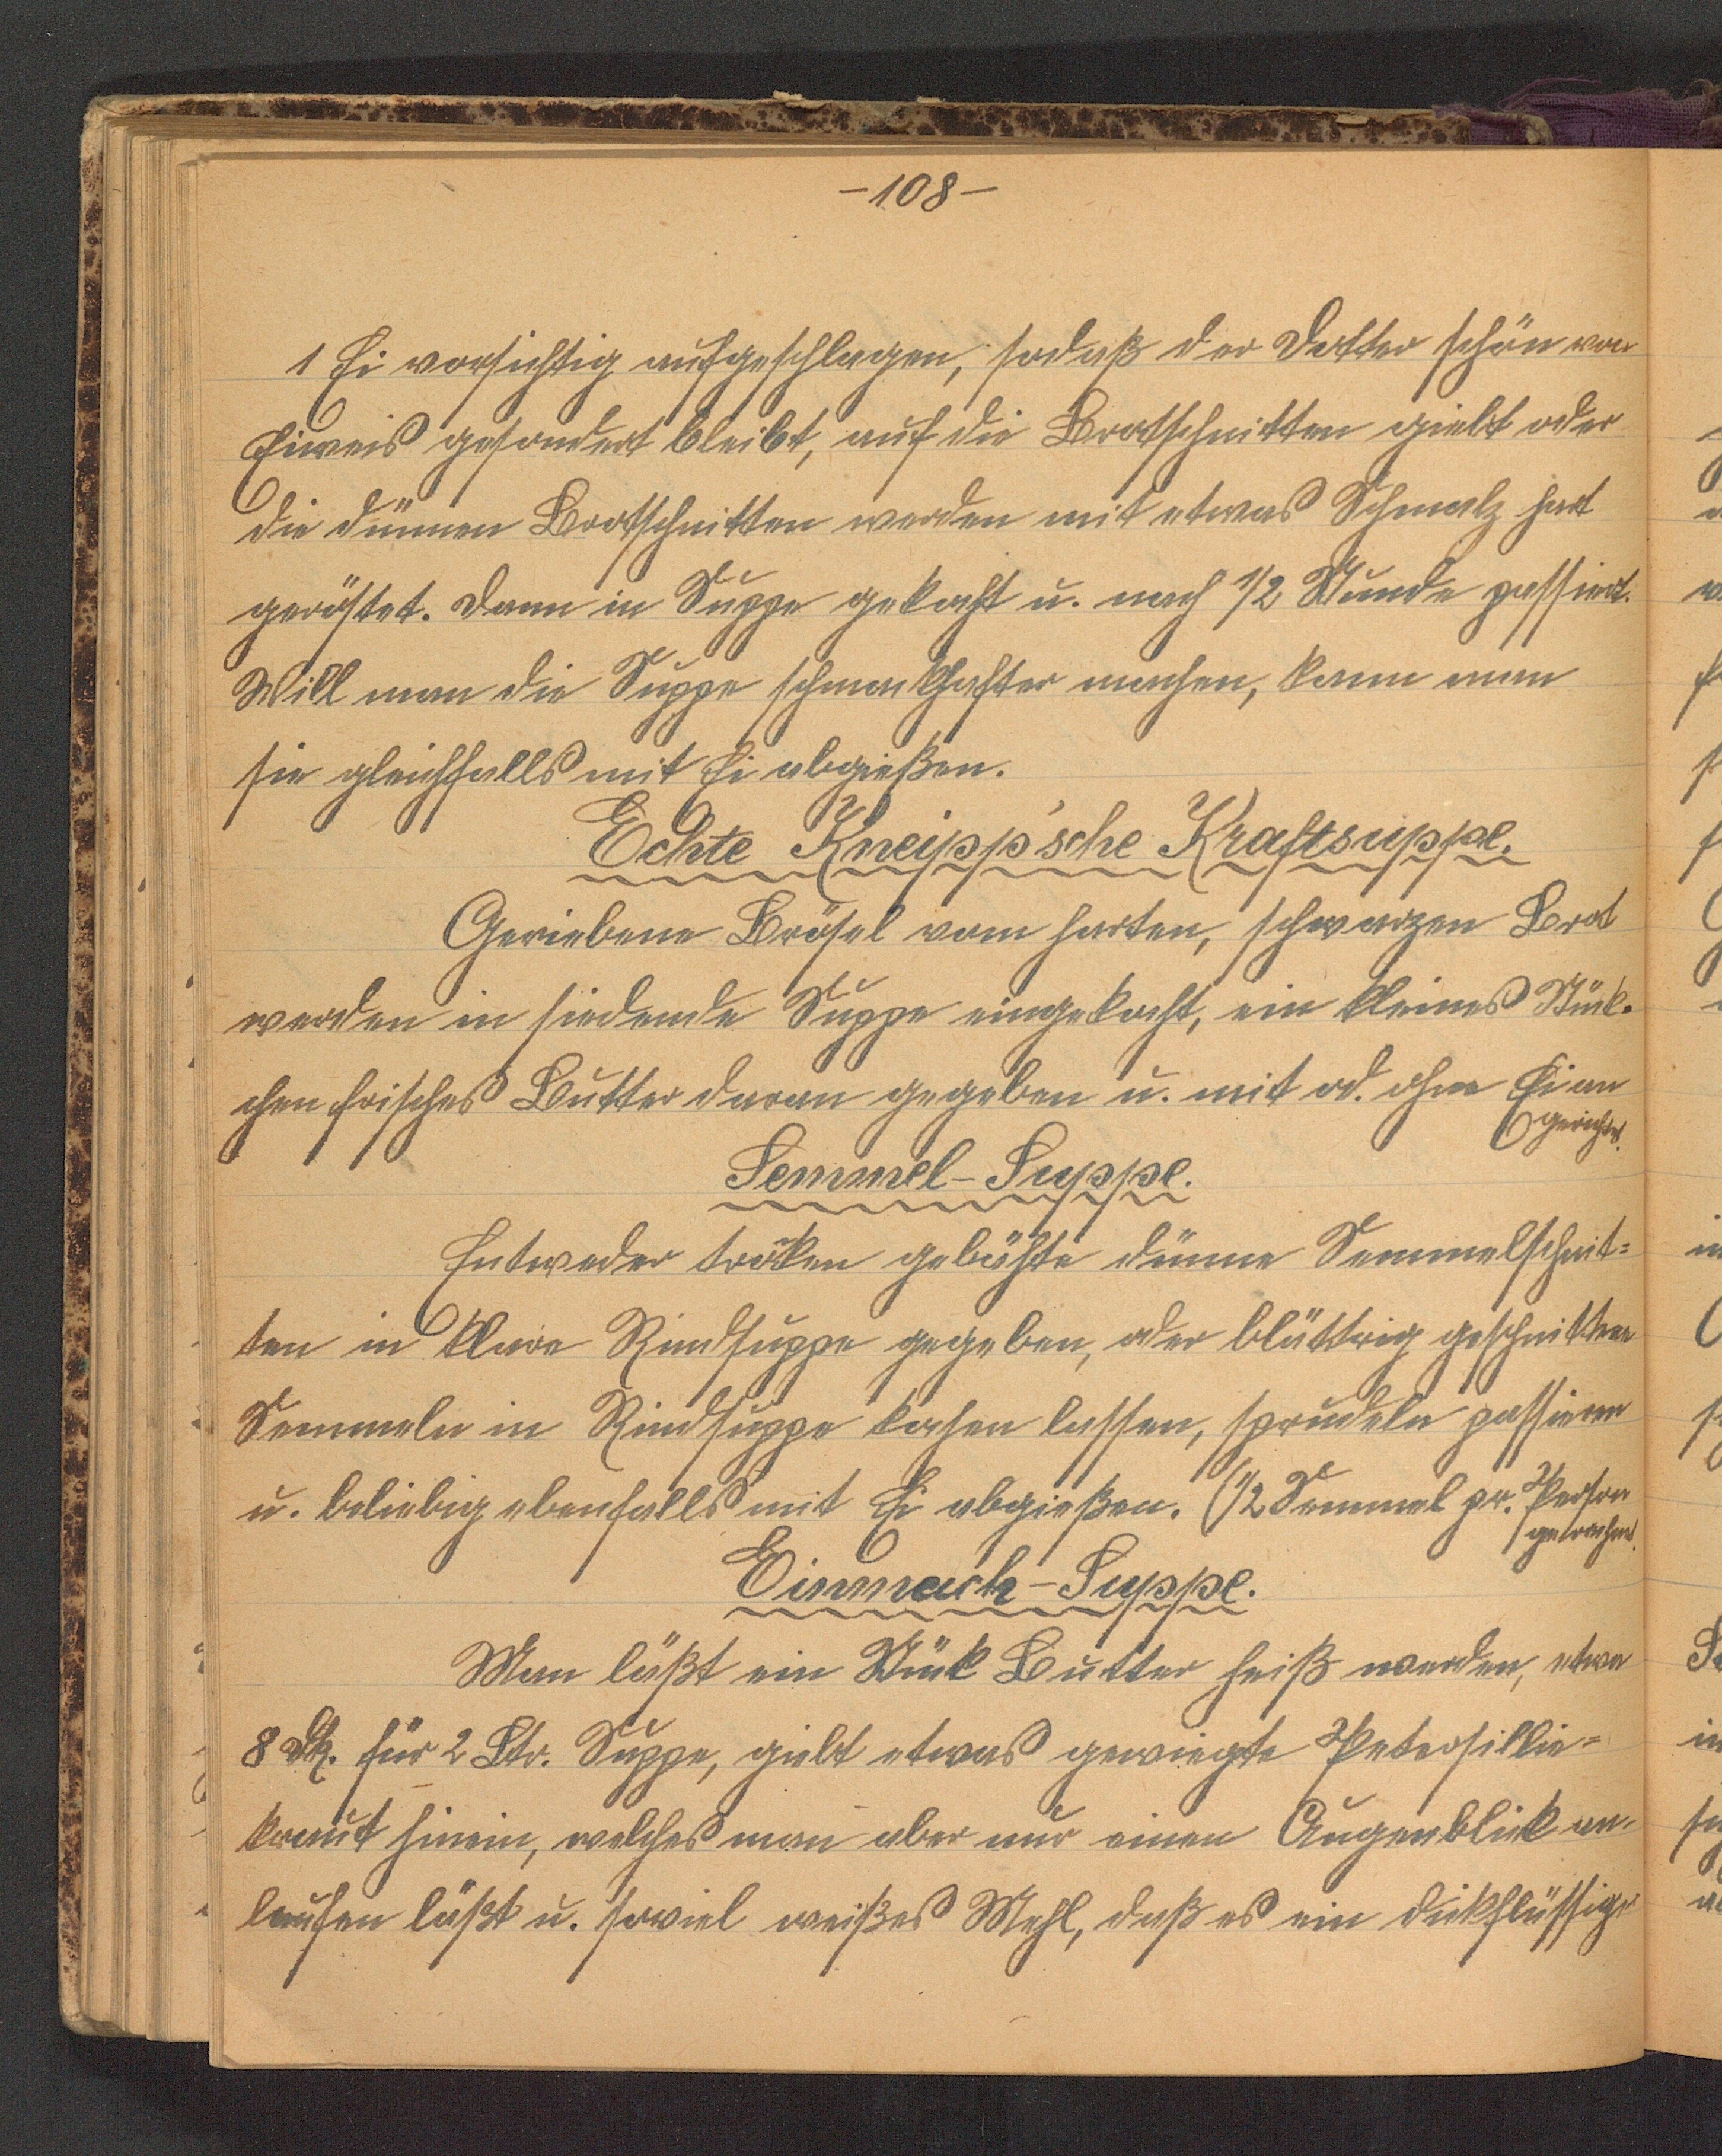 -108-
1 Ei vorsichtig aufgeschlagen, sodaß der Dotter schön von
Eiweis gesondert bleibt, auf die Brotschnitten giebt oder
die dünnen Brotschnitten werden mit etwas Schmalz hart
geröstet. Dann in Suppe gekocht u. nach 1/2 Stunde passiert.
Will man die Suppe schmackhafter machen, kann man
sie gleichfalls mit Ei abgießen.
Echte Kneipp'sche Kraftsuppe.
Geriebene Brösel vom harten, schwarzen Brot
werden in siedende Suppe eingekocht, ein kleines Stük-
chen frisches Butter daran gegeben u. mit od. ohne Ei an
gerichtet.
Semmel-Suppe.
Entweder troken gebähte dünne Semmelschnit=
ten in klare Rindsuppe gegeben, oder blättrig geschnittene
Semmeln in Rindsuppe kochen lassen, sprudeln passieren
u. beliebig ebenfalls mit Ei abgießen. (1/2 Semmel pr. Person
gerechnet.
Einmach-Suppe.
Man läßt ein Stük Butter heiß werden, etwa
8 Dk. für 2 Ltr. Suppe, giebt etwas gewiegte Petersillie=
kraut hinein, welches man aber nur einen Augenblick an-
laufen läßt u. soviel weißes Mehl, daß es ein dikflüssiges